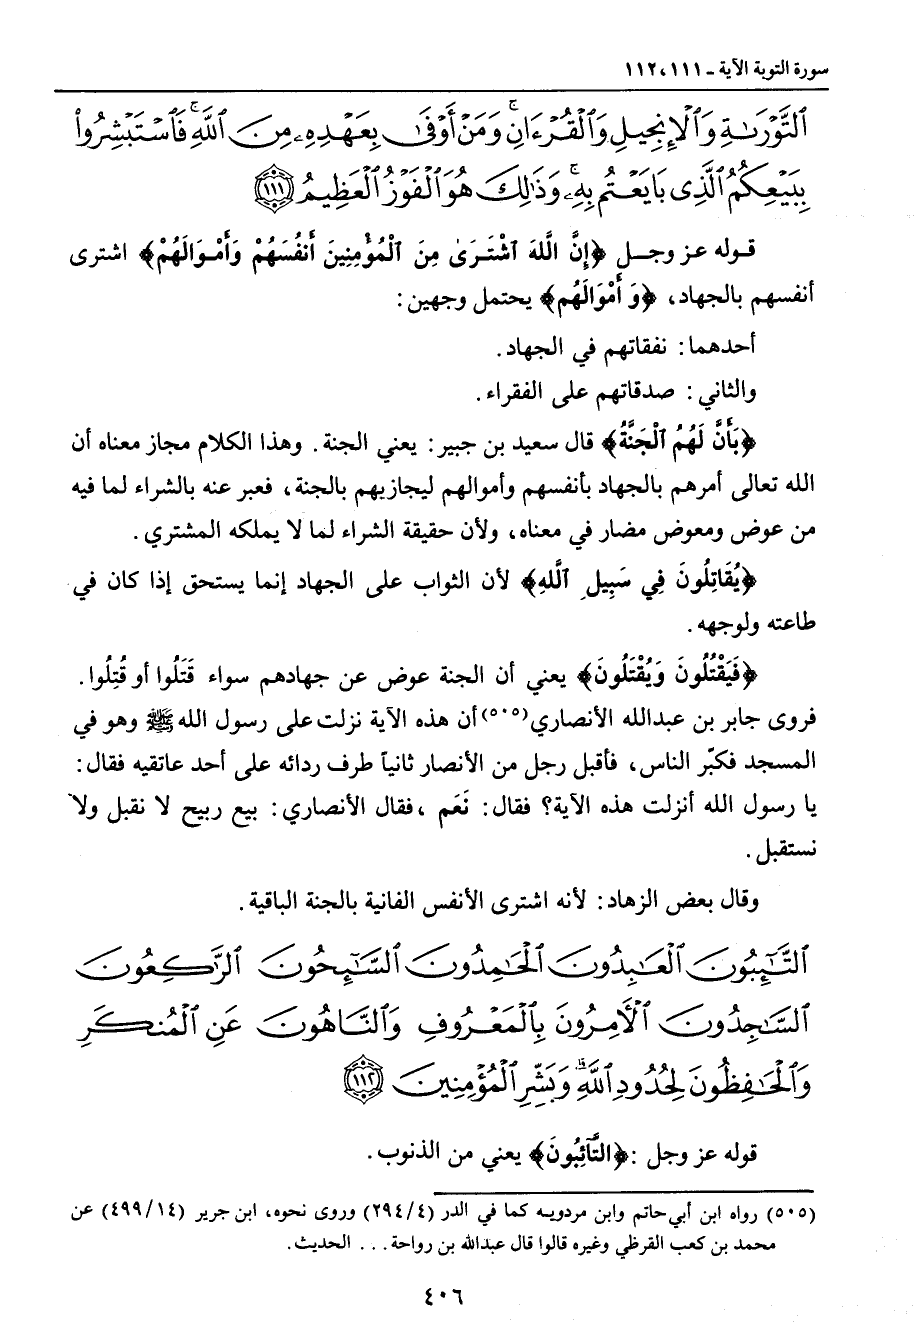 سورة التوبة الآية - ١١١، ١١٢
التَّوْرَىٰةِ وَالْإِنجِيلِ وَالْقُرْءَانِ ۚ وَمَنْ أَوْفَىٰ بِعَهْدِهِۦ مِنَ اللَّهِ ۚ فَاسْتَبْشِرُوا
بِبَيْعِكُمُ الَّذِى بَايَعْتُم بِهِۦ ۚ وَذَٰلِكَ هُوَ الْفَوْزُ الْعَظِيمُ ١١١
قوله عز وجل ﴿إِنَّ اللَّهَ اشْتَرَىٰ مِنَ الْمُؤْمِنِينَ أَنفُسَهُمْ وَأَمْوَالَهُمْ﴾ اشترى
أنفسهم بالجهاد، ﴿وَ أَمْوَالَهُم﴾ يحتمل وجهين:
أحدهما: نفقاتهم في الجهاد.
والثاني: صدقاتهم على الفقراء.
﴿بَأَنَّ لَهُمُ الْجَنَّةُ﴾ قال سعيد بن جبير: يعني الجنة. وهذا الكلام مجاز معناه أن
الله تعالى أمرهم بالجهاد بأنفسهم وأموالهم ليجازيهم بالجنة، فعبر عنه بالشراء لما فيه
من عوض ومعوض مضار في معناه، ولأن حقيقة الشراء لما لا يملكه المشتري.
﴿يُقَاتِلُونَ فِي سَبِيلِ اللَّهِ﴾ لأن الثواب على الجهاد إنما يستحق إذا كان في
طاعته ولوجهه.
﴿فَيَقْتُلُونَ وَيُقْتَلُونَ﴾ يعني أن الجنة عوض عن جهادهم سواء قَتَلُوا أو قُتِلُوا.
فروى جابر بن عبدالله الأنصاري(٥٠٥) أن هذه الآية نزلت على رسول الله ﷺ وهو في
المسجد فكبّر الناس، فأقبل رجل من الأنصار ثانياً طرف ردائه على أحد عاتقيه فقال:
يا رسول الله أنزلت هذه الآية؟ فقال: نَعَم ،فقال الأنصاري: بيع ربيح لا نقبل ولا
نستقبل.
وقال بعض الزهاد: لأنه اشترى الأنفس الفانية بالجنة الباقية.
التَّٰٓئِبُونَ الْعَٰبِدُونَ الْحَٰمِدُونَ السَّٰٓئِحُونَ الرَّٰكِعُونَ
السَّٰجِدُونَ الْآمِرُونَ بِالْمَعْرُوفِ وَالنَّاهُونَ عَنِ الْمُنكَرِ
وَالْحَٰفِظُونَ لِحُدُودِ اللَّهِ ۗ وَبَشِّرِ الْمُؤْمِنِينَ ١١٢
قوله عز وجل :﴿التَّائِبُونَ﴾ يعني من الذنوب.
(٥٠٥) رواه ابن أبي حاتم وابن مردويه كما في الدر (٢٩٤/٤) وروى نحوه، ابن جرير (٤٩٩/١٤) عن
محمد بن كعب القرظي وغيره قالوا قال عبدالله بن رواحة . . . الحديث.
٤٠٦